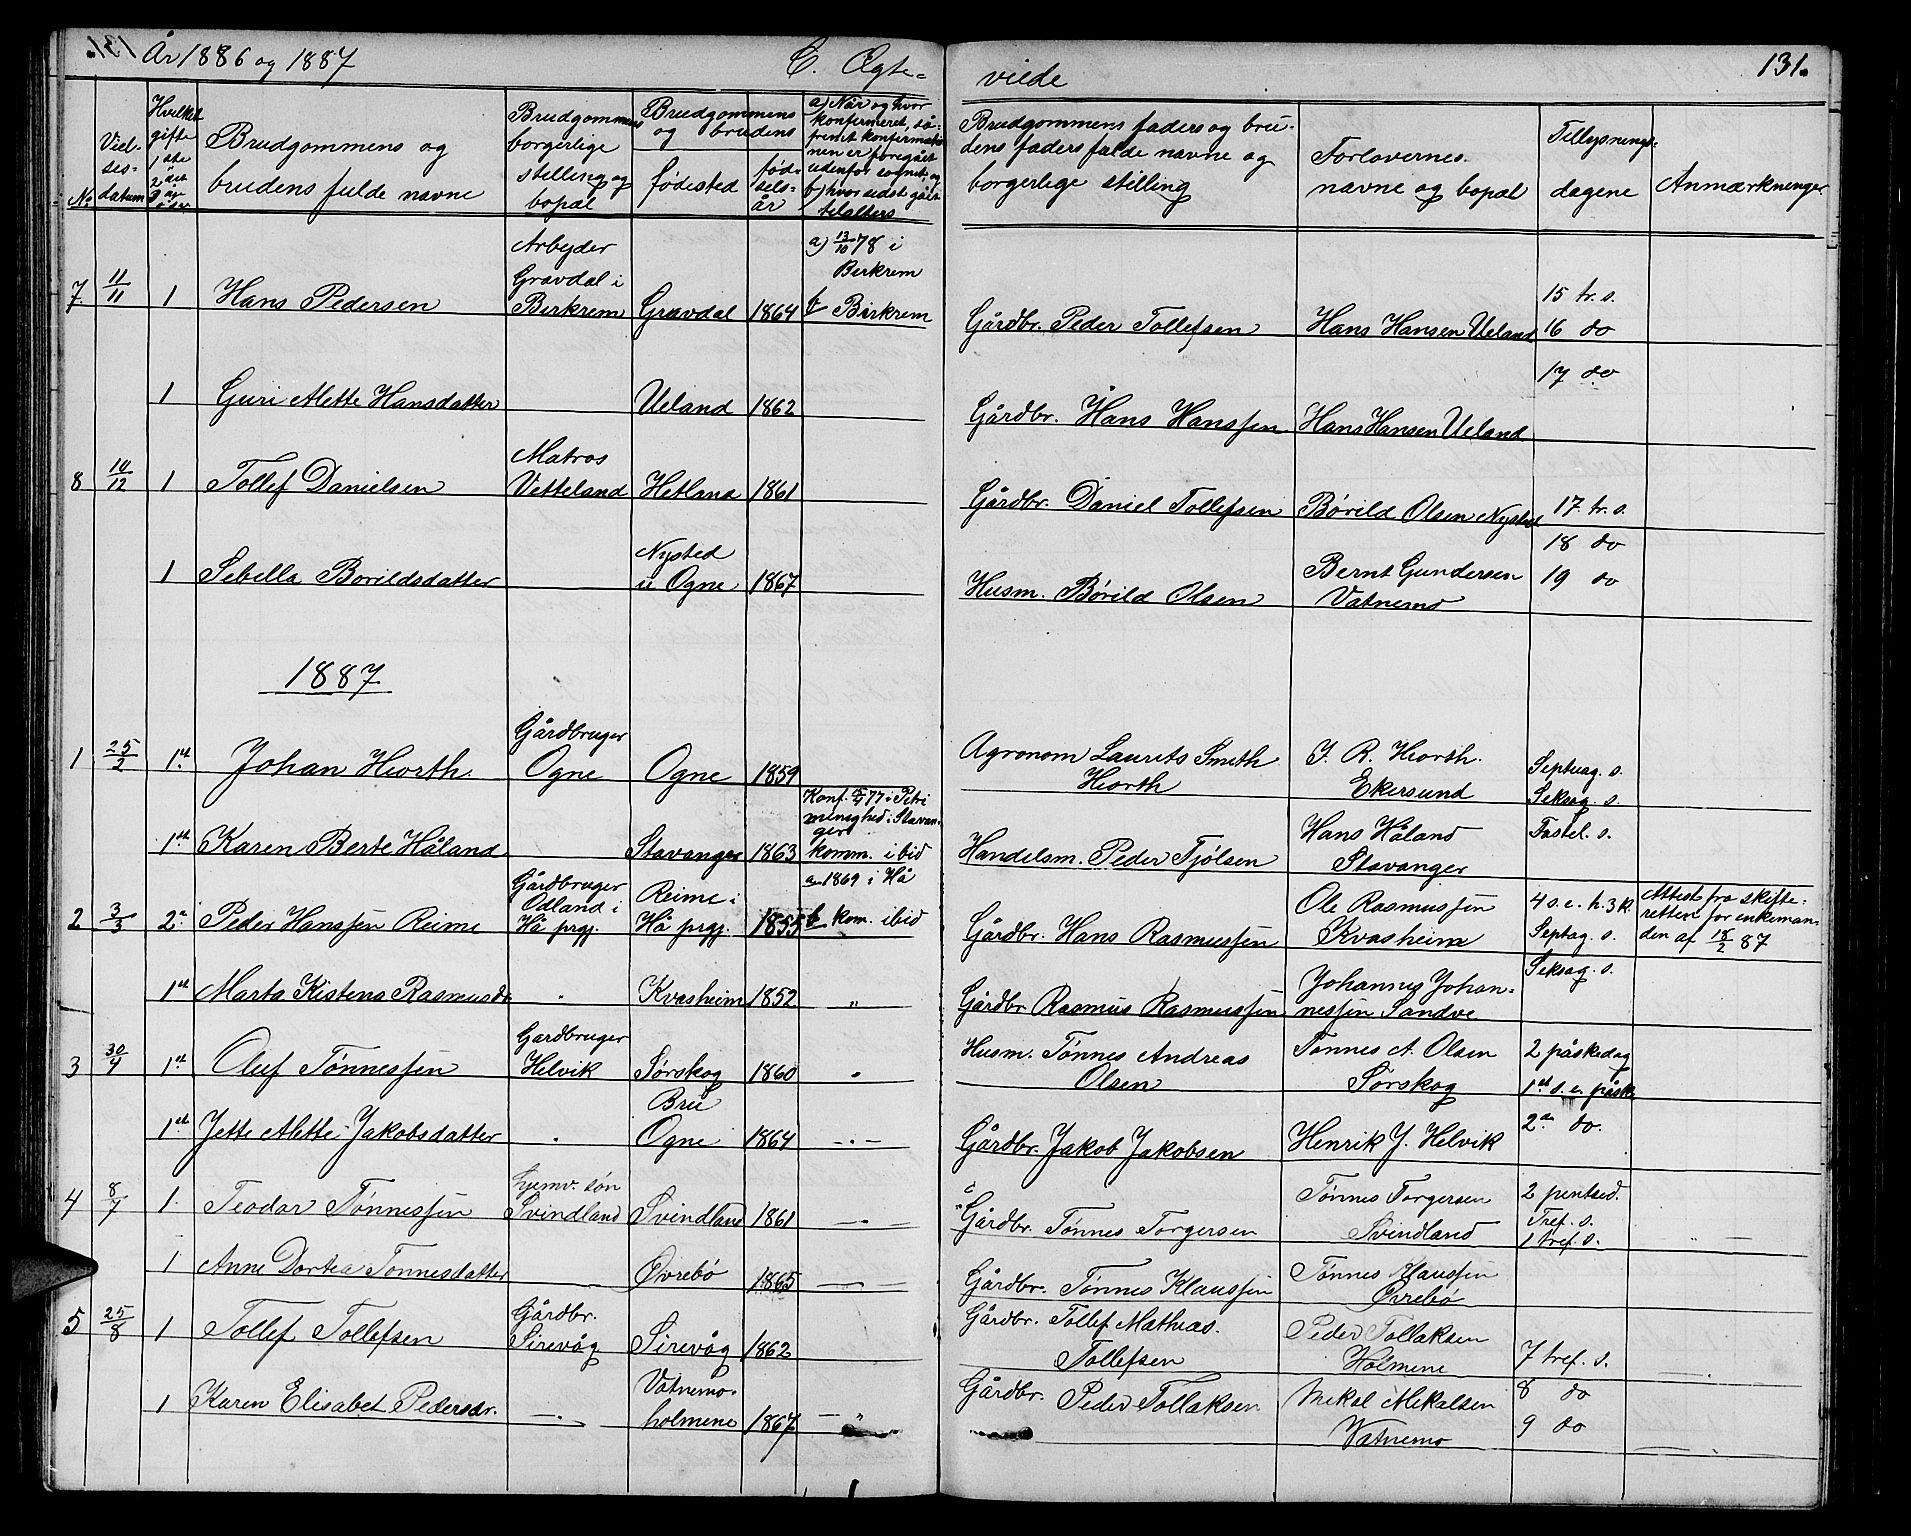 131. År 1886 og 1887
C. Ægte-
viede
131.
No
Viel-
ses-
datum
Hvilket
gifte
1ste
2det
3die
Brudgommens og
brudens fulde navne
Brudgommens
borgerlige
stelling og
bopæl
Brudgommens
og brudens
fødested
fød-
sels-
år
a) Når og hvor
konfirmeret, så-
fremt konfirmatio-
nen er foregået
udenfor sognet, og
b) hvor sidst gået
til alters
Brudgommens faders og bru-
dens faders fulde navne og
borgerlige stilling
Forlovernes
navne og bopæl
Tillysnings-
dagene
Anmærkninger
7 11/11 1 Hans Pedersen
Arbeyder
Gravdal i
Birkrem
Gravdal 1864
a) 13/10 78 i
Birkrem
b Birkrem
Gårdbr. Peder Tollefsen
Hans Hansen Ueland
15 tr. s.
16 do
17 do
1 Guri Alette Hansdatter
Ueland 1862
Gårdbr. Hans Hanssen
Hans Hansen Ueland
8 10/12 1 Tollef Danielsen
Matros
Vetteland
Hetland 1861
Gårdbr. Daniel Tollefsen
Børild Olsen Nysted
17 tr. s.
18 do
19 do
1 Sebella Børildsdatter
Nysted
u Ogne 1867
Husm. Børild Olsen
Bernt Gundersen
Vatnemo
1887
1 25/2 1st Johan Hiorth
Gårdbruger
Ogne
Ogne 1859
Agronom Laurits Smith
Hiorth
J. R. Hiorth.
Ekersund
Septuag. s.
Seksag. s.
Fastel. s.
1st Karen Berte Håland
Stavanger 1863
Konf. 77 i Petri
menighed i Stavan-
ger
komm. ibid
Handelsm. Peder Tjølsen
Hans Håland
Stavanger
2 3/3 2n Peder Hanssen Reime
Gårdbruger
Odland i
Hå prgj.
Reime i
Hå prgj. 1855
a 1869 i Hå
b kom. ibid
Gårdbr. Hans Rasmussen
Ole Rasmussen
Kvasheim
4 s. e. h. 3 k.
Septag. s.
Seksag. s.
Attest fra skifte-
retten for enkeman-
den af 18/2 87
1st Marta Kistena Rasmusdr
Kvasheim 1852 "
Gårdbr Rasmus Rasmussen
Johannes Johan-
nessen Sandve
3 30/4 1st Oluf Tønnessen
Gardbruger
Helvik
Sørskog 1860
Husm. Tønnes Andreas
Olsen
Tønnes A. Olsen
Sørskog
2 påskedag
1st s. e. påsk
2n do.
1st Jette Alette Jakobsdatter
Bru
Ogne 1864
Gårdbr. Jakob Jakobsen
Henrik J. Helvik
4 8/7 1. Teodor Tønnessen
hjemv. søn
Svindland
Svindland 1861
Gårdbr. Tønnes Torgersen
Tønnes Torgersen
Svindland
2 pintsed.
Tref. s.
1 tref. s.
1 Anne Dortea Tønnesdatter
Øvrebø 1865
Gårdbr. Tønnes Klaussen
Tønnes Klaussen
Øvrebø
5 25/8 1 Tollef Tollefsen
Gårdbr.
Sirevåg
Sirevåg 1862
Gårdbr. Tollef Mathias.
Tollefsen
Peder Tollaksen
Holmene
7 tref. s.
8 do
9 do
1 Karen Elisabet Pedersdr.
Vatnemo-
holmene 1867 "
Gårdbr. Peder Tollaksen
Mikal Mikalsen
Vatnemo